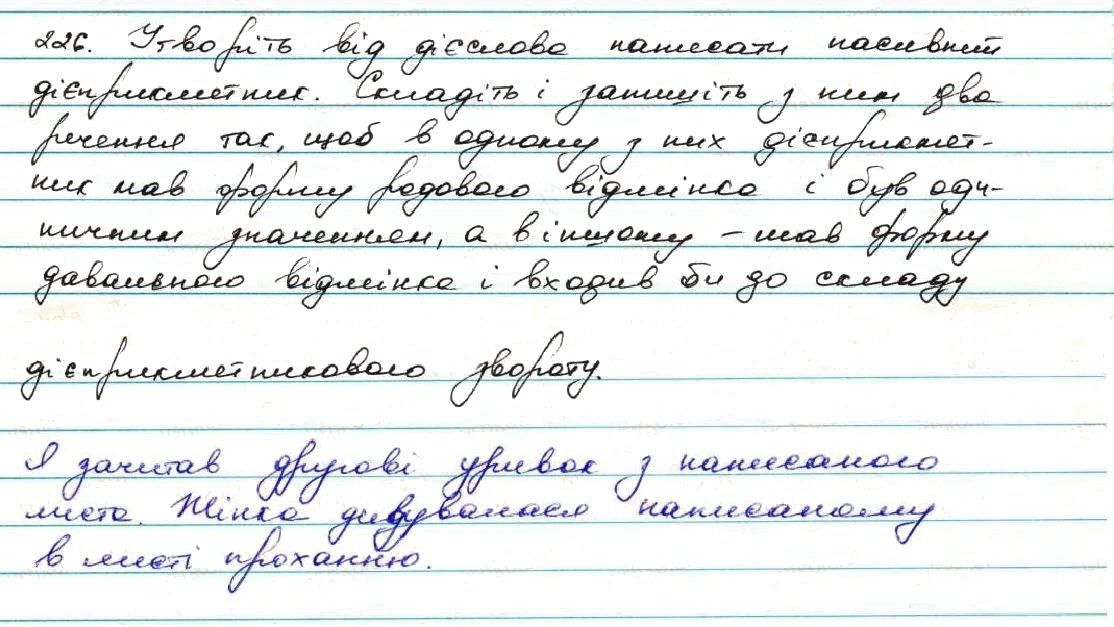 226. Утворіть від дієслова написати пасивний
дієприкметник. Складіть і запишіть з ним два
речення так, щоб в одному з них дієприкмет-
ник мав форму родового відмінка і був оди-
ничним значенням, а в іншому – мав форму
давального відмінка і входив би до складу
дієприкметникового звороту.
Я зачитав другові уривок з написаного
листа. Жінка дивувалася написаному
в листі проханню.